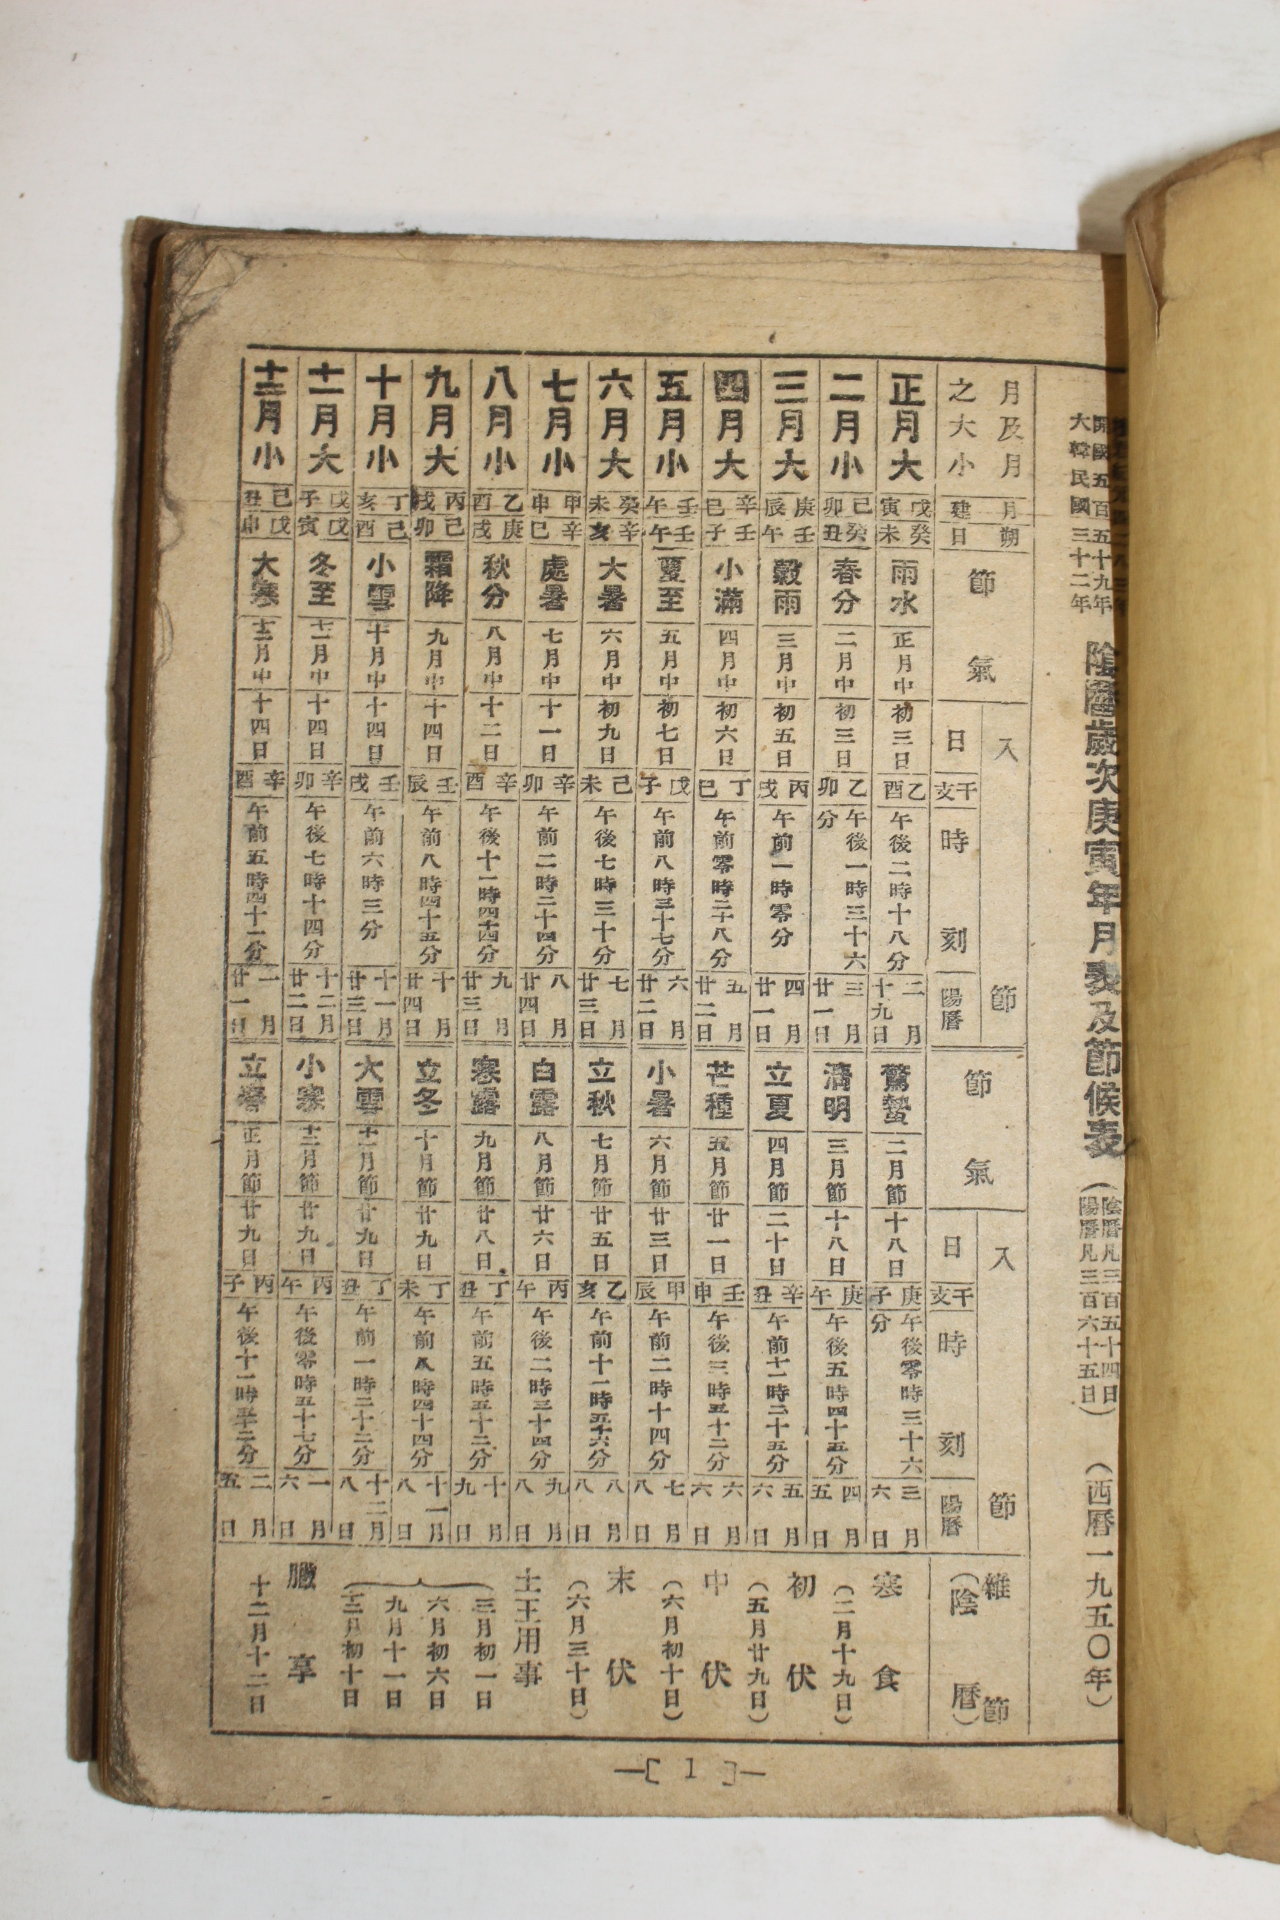 開國五百五十九年
大韓民國三十二年
陰曆歲次庚寅年月表及節候表
(陰曆凡三百五十四日
陽曆凡三百六十五日)
(西曆一九五〇年)
月及月之大小 月建 朔日 節氣 入節 日 干支 時刻 陽曆 節氣 入節 日 干支 時刻 陽曆 維節(陰曆)
正月大 戊寅 癸未 雨水 正月中 初三日 乙酉 午後二時十八分 二月十九日 驚蟄 二月節 十八日 庚子 午後零時三十六分 三月六日
二月小 己卯 癸丑 春分 二月中 初三日 乙卯 午後一時三十六分 三月廿一日 淸明 三月節 十八日 庚午 午後五時四十五分 四月五日
三月大 庚辰 壬午 穀雨 三月中 初五日 丙戌 午前一時零分 四月廿一日 立夏 四月節 二十日 辛丑 午前十一時二十五分 五月六日
四月大 辛巳 壬子 小滿 四月中 初六日 丁巳 午前零時二十八分 五月廿二日 芒種 五月節 廿一日 壬申 午後三時五十二分 六月六日
五月小 壬午 壬午 夏至 五月中 初七日 戊子 午前八時三十七分 六月廿二日 小暑 六月節 廿三日 甲辰 午前二時十四分 七月八日
六月大 癸未 辛亥 大暑 六月中 初九日 己未 午後七時三十分 七月廿三日 立秋 七月節 廿五日 乙亥 午前十一時五十六分 八月八日
七月小 甲申 辛巳 處暑 七月中 十一日 辛卯 午前二時二十四分 八月廿四日 白露 八月節 廿六日 丙午 午後二時三十四分 九月八日
八月小 乙酉 庚戌 秋分 八月中 十二日 辛酉 午後十一時四十四分 九月廿三日 寒露 九月節 廿八日 丁丑 午前五時五十二分 十月九日
九月大 丙戌 己卯 霜降 九月中 十四日 壬辰 午前八時四十五分 十月廿四日 立冬 十月節 廿九日 丁未 午前八時四十四分 十一月八日
十月小 丁亥 己酉 小雪 十月中 十四日 壬戌 午前六時三分 十一月廿三日 大雪 十一月節 廿九日 丁丑 午前一時二十二分 十二月八日
十一月大 戊子 戊寅 冬至 十一月中 十四日 辛卯 午後七時十四分 十二月廿二日 小寒 十二月節 廿九日 丙午 午後零時五十七分 一月六日
十二月小 己丑 戊申 大寒 十二月中 十四日 辛酉 午前五時四十一分 一月廿一日 立春 正月節 廿九日 丙子 午後十一時五十二分 二月五日
寒食
(二月十九日)
初伏
(五月廿九日)
中伏
(六月初十日)
末伏
(六月三十日)
土王用事
三月初一日
六月初六日
九月十一日
十二月初十日
臘享
十二月十二日
—[ 1 ]—